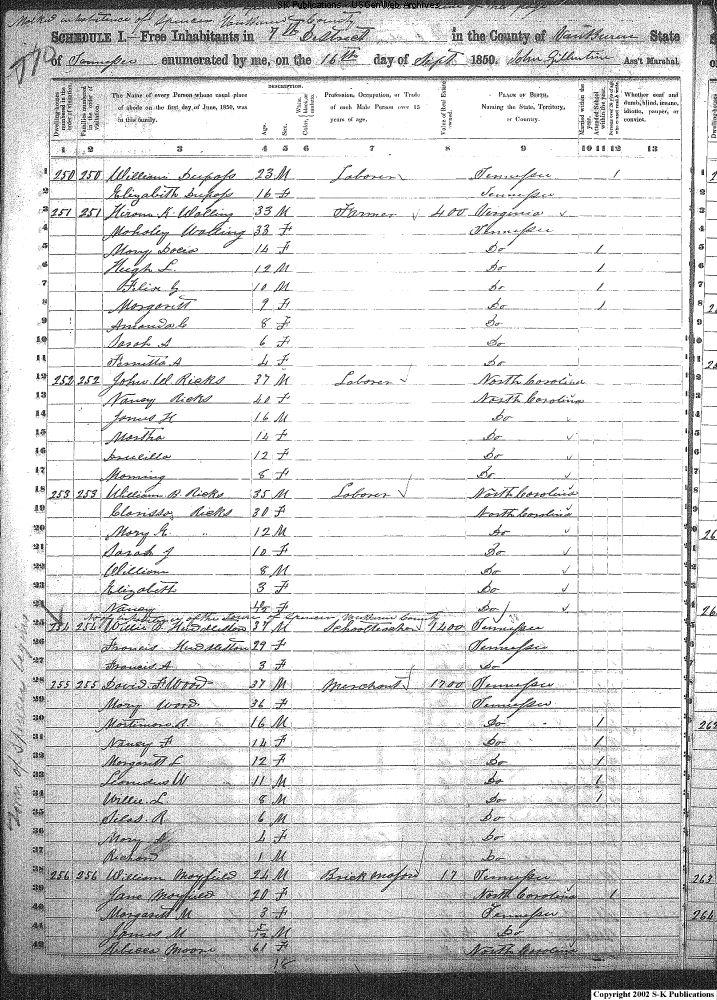 SK Publications / USGenWeb Archives
Not inhabitance of Spencer County
SCHEDULE I.—Free Inhabitants in 7th District in the County of Van Buren State
of Tennessee enumerated by me, on the 16th day of Sept. 1850. John Gillentine Ass't Marshal.
DESCRIPTION.
Dwelling-houses numbered in the order of visitation.
Families numbered in the order of visitation.
The Name of every Person whose usual place of abode on the first day of June, 1850, was in this family.
Age.
Sex.
Color, White, black, or mulatto.
Profession, Occupation, or Trade of each Male Person over 15 years of age.
Value of Real Estate owned.
PLACE OF BIRTH, Naming the State, Territory, or Country.
Married within the year.
Attended School within the year.
Persons over 20 y'rs of age who cannot read & write.
Whether deaf and dumb, blind, insane, idiotic, pauper, or convict.
1 2 3 4 5 6 7 8 9 10 11 12 13
1 250 250 William 23 M Laborer Tennessee 1
2 Elizabeth 16 F Tennessee
3 251 251 Hiram K Walling 33 M Farmer 400 Virginia
4 Mahaley Walling 33 F Tennessee
5 Mary Docia 14 F Do 1
6 Hugh L. 12 M Do 1
7 Felix G 10 M Do 1
8 Margarett 9 F Do 1
9 Amanda C 8 F Do
10 Sarah A 6 F Do
11 A 4 F Do
12 252 252 John W Ricks 37 M Laborer North Carolina
13 Nancy Ricks 40 F North Carolina
14 James H 16 M Do
15 Martha 14 F Do
16 12 F Do
17 Morning 8 F Do
18 253 253 William B Ricks 35 M Laborer North Carolina
19 Clarissa Ricks 30 F North Carolina
20 Mary 12 M Do
21 Sarah J 10 F Do
22 William 8 M Do
23 Elizabeth 3 F Do
24 Nancy F Do
Not inhabitance of the Town of Spencer County
25 254 254 Willie B Huddleston 37 M Schoolteacher 1400 Tennessee
26 Francis Huddleston 29 F Tennessee
Francis A 3 F Do
28 255 255 David F Wood 37 M Merchant 1700 Tennessee
Mary Wood 36 F Tennessee
30 Mortimore R. 16 M Do 1
31 Nancy F 14 F Do 1
32 Margarett L 12 F Do 1
33 Leonidus W 11 M Do 1
34 Willie L. 8 M Do 1
35 Silas R 6 M Do
36 Mary 4 F Do
37 Richard 1 M Do
38 256 256 William Mayfield 24 M Brick mason 17 Tennessee
Jane Mayfield 20 F North Carolina 1
40 Margarett M 3 F Tennessee
41 James M M Do
42 Rebecca Moore 61 F North Carolina
18
Town of Spencer begins
Copyright 2002 S-K Publications